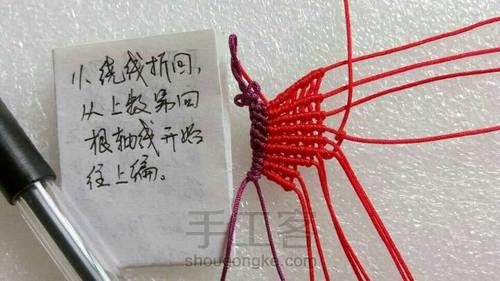 11、绕线折回，
从上数第四
根轴线开始
往上编。
手工客
shougongke.com